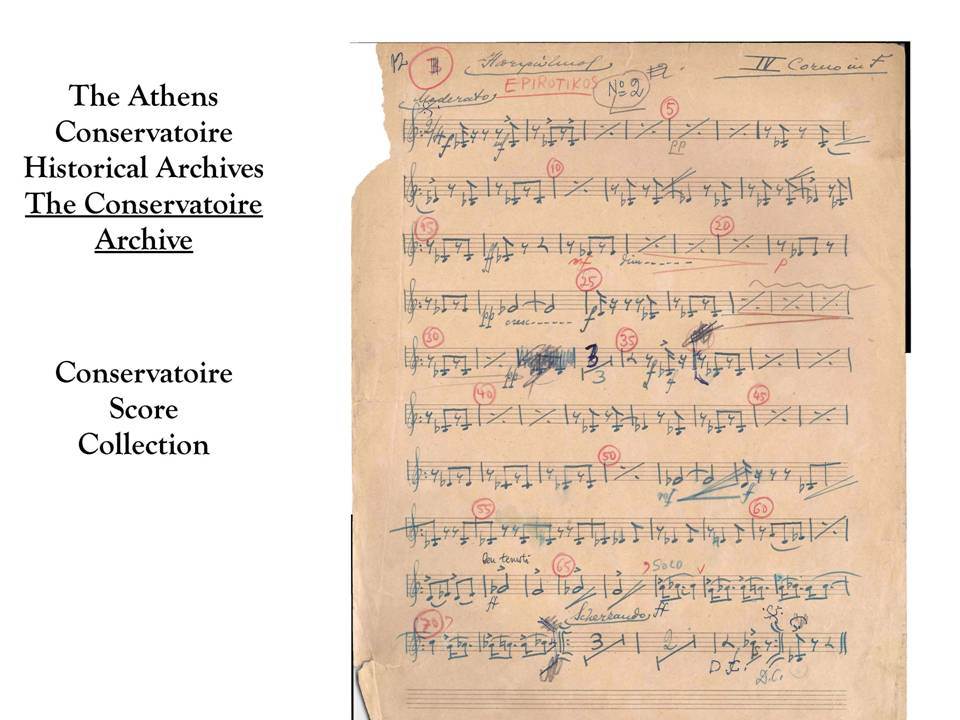 The Athens
Conservatoire
Historical Archives
The Conservatoire
Archive
Conservatoire
Score
Collection
12
IV Corno in F
EPIROTIKOS
Nº 2
Moderato
5
pp
10
15
20
ff
mf
dim
p
25
pp
cresc
f
30
35
pp
3
3
f
40
45
50
f
55
60
ben tenuti
65
SOLO
ff
ff
Scherzando
70
3
2
D.C.
D.C.